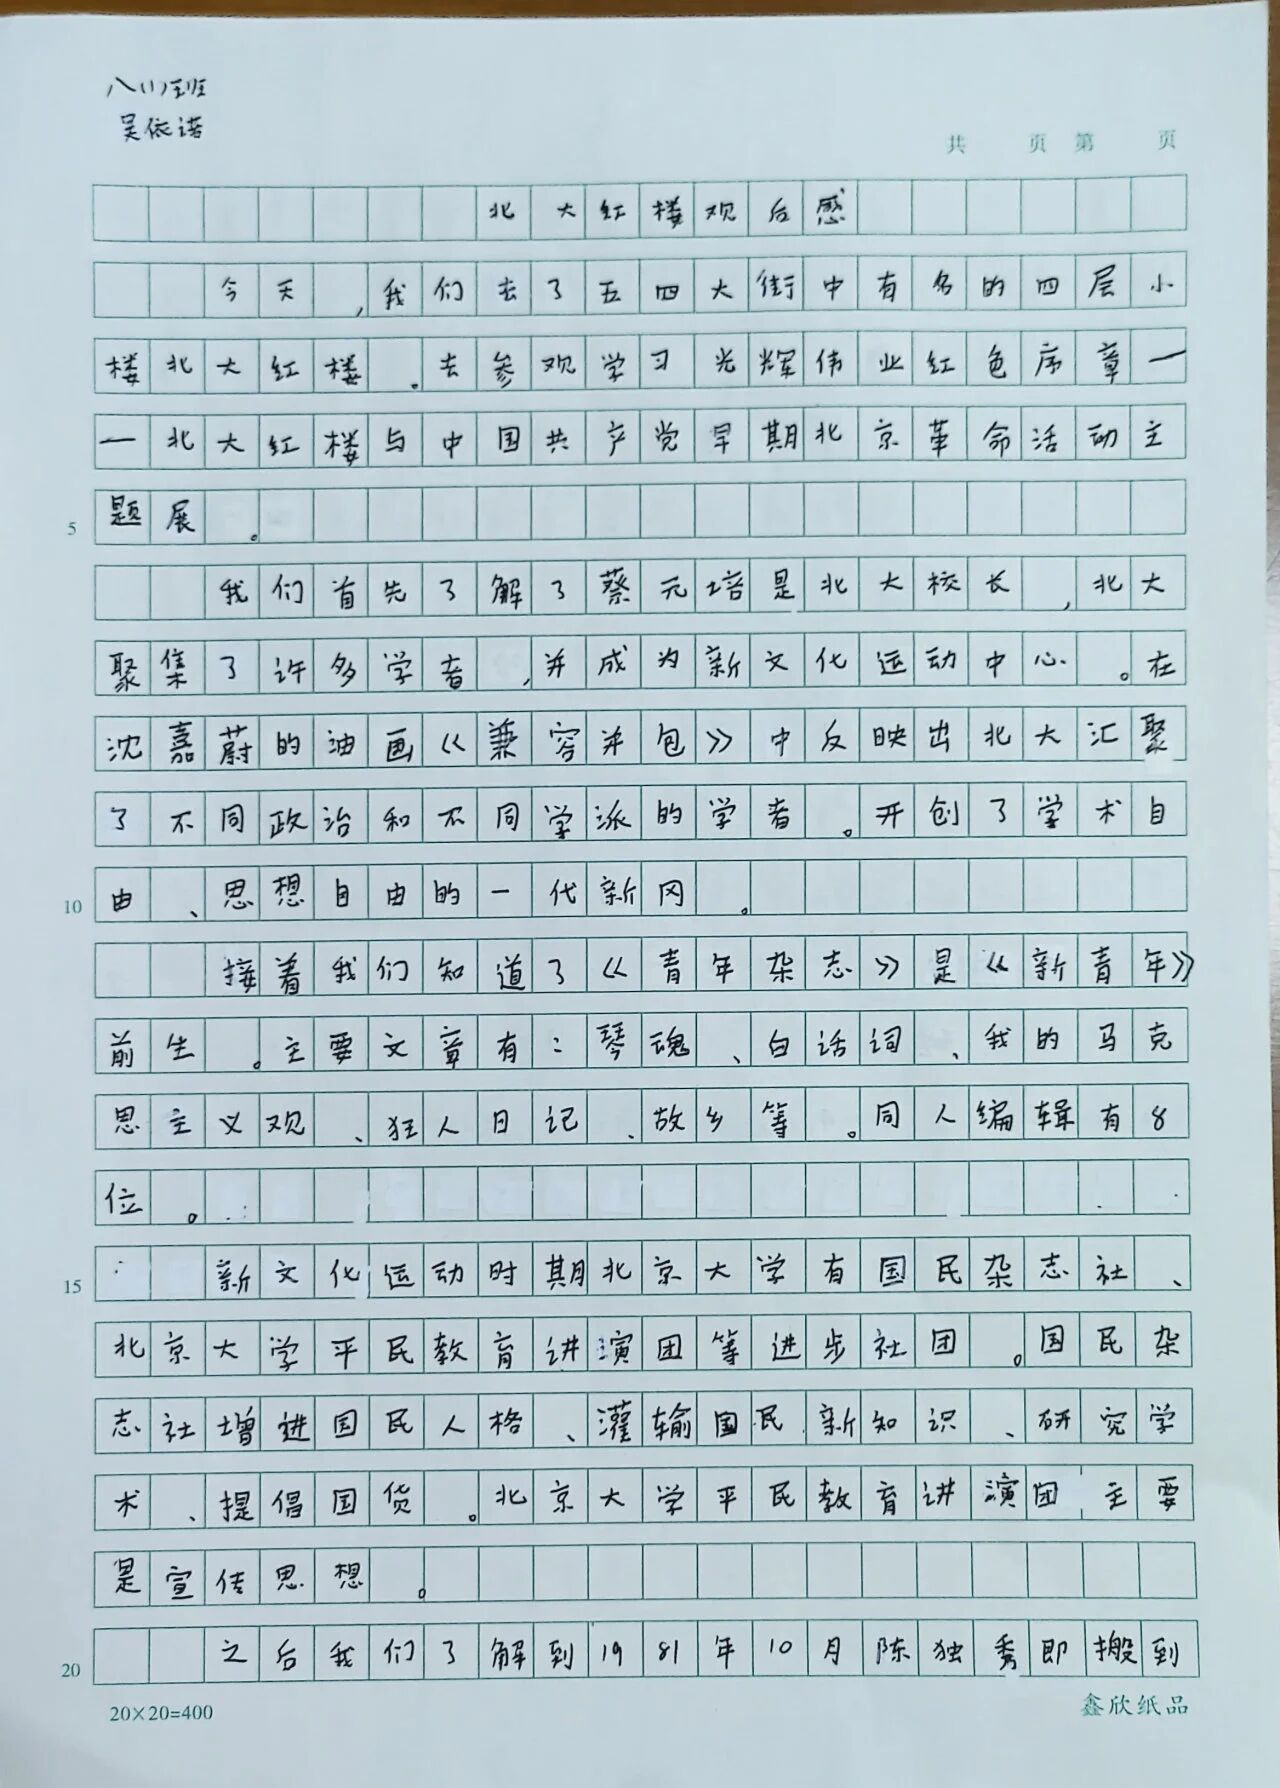 八(1)班
吴依诺
共 页 第 页
北大红楼观后感
今天,我们去了五四大街中有名的四层小
楼北大红楼。去参观学习光辉伟业红色序章一
一北大红楼与中国共产党早期北京革命活动主
5 题展。
我们首先了解了蔡元培是北大校长,北大
聚集了许多学者,并成为新文化运动中心。在
沈嘉蔚的油画《兼容并包》中反映出北大汇聚
了不同政治和不同学派的学者。开创了学术自
10 由、思想自由的一代新冈。
接着我们知道了《青年杂志》是《新青年》
前生。主要文章有:琴魂、白话词、我的马克
思主义观、狂人日记、故乡等。同人编辑有8
位。
15 新文化运动时期北京大学有国民杂志社、
北京大学平民教育讲演团等进步社团。国民杂
志社增进国民人格、灌输国民新知识、研究学
术、提倡国货。北京大学平民教育讲演团主要
是宣传思想。
20 之后我们了解到1981年10月陈独秀即搬到
20×20=400 鑫欣纸品